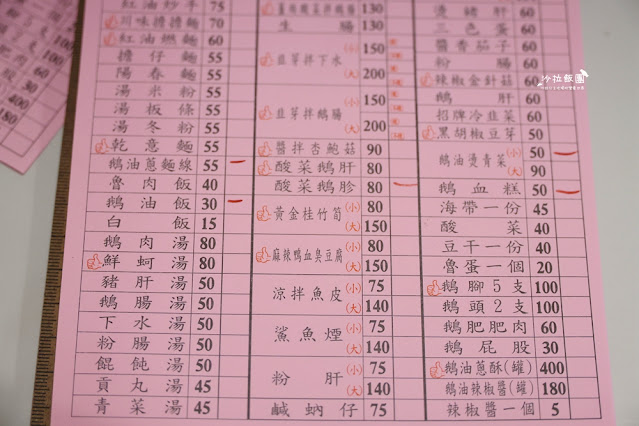 紅油炒手 75
川味擔擔麵 70
紅油燃麵 60
擔仔麵 55
陽春麵 55
湯米粉 55
湯板條 55
湯冬粉 55
乾意麵 55
鵝油蔥麵線 55
魯肉飯 40
鵝油飯 30
白飯 15
鵝肉湯 80
鮮蚵湯 80
豬肝湯 50
鵝腸湯 50
下水湯 50
粉腸湯 50
餛飩湯 50
貢丸湯 45
青菜湯 45
薑絲酸菜拌鵝腸 130
生腸 130
韭芽拌下水 (小) 150
(大) 200
韭芽拌鵝腸 (小) 150
(大) 200
醬拌杏鮑菇 90
酸菜鵝肝 80
酸菜鵝胗 80
黃金桂竹筍 (小) 80
(大) 150
麻辣鴨血臭豆腐 (小) 80
(大) 150
涼拌魚皮 (小) 75
(大) 140
鯊魚煙 (小) 75
(大) 140
粉肝 (小) 75
(大) 140
鹹蚋仔 75
燙豬肝 60
三色蛋 60
醬香茄子 60
粉腸 60
辣椒金針菇 60
鵝肝 60
招牌冷韭菜 60
黑胡椒豆芽 50
鵝油燙青菜 (小) 50
(大) 90
鵝血糕 50
海帶一份 45
酸菜 40
豆干一份 40
魯蛋一個 20
鵝腳5支 100
鵝頭2支 100
鵝肥肥肉 60
鵝屁股 30
鵝油蔥酥(罐) 400
鵝油辣椒醬(罐) 180
辣椒醬一個 5
沙拉飯團